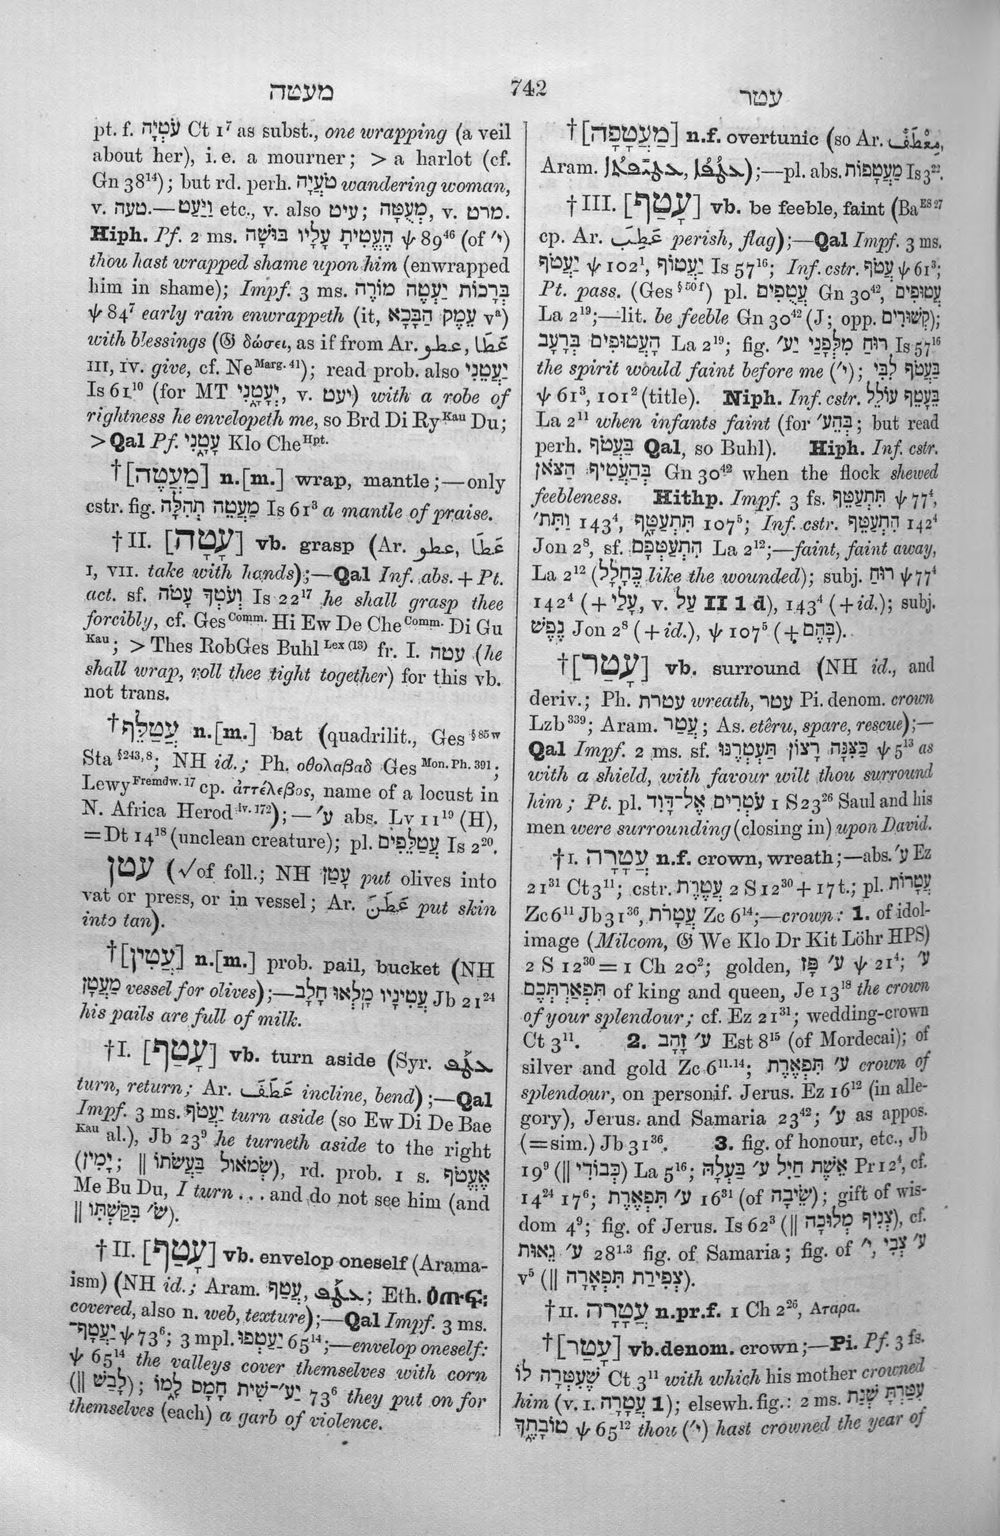 מעטה
742
עטר
pt. f. עֹטְיָה Ct 1⁷ as subst., one wrapping (a veil
about her), i. e. a mourner; > a harlot (cf.
Gn 38¹⁴); but rd. perh. טֹעֲיָה wandering woman,
v. טעה.— וַיַּעַט etc., v. also עיט; מְעֻטָּה, v. מרט.
Hiph. Pf. 2 ms. הֶעֱטִיתָ עָלָיו בּוּשָׁה ψ 89⁴⁶ (of ׳י)
thou hast wrapped shame upon him (enwrapped
him in shame); Impf. 3 ms. בְּרָכוֹת יַעְטֶה מוֹרֶה
ψ 84⁷ early rain enwrappeth (it, עֵמֶק הַבָּכָא vᵃ)
with blessings (𝔊 δώσει, as if from Ar. عطو, عَطَا
III, IV. give, cf. Ne Marg. 41); read prob. also יַעֲטֵנִי
Is 61¹⁰ (for MT יְעָטָנִי, v. יעט) with a robe of
rightness he envelopeth me, so Brd Di Ry Kau Du;
> Qal Pf. עָטָנִי Klo Che Hpt.
† [מַעֲטֶה] n.[m.] wrap, mantle;—only
cstr. fig. מַעֲטֵה תְהִלָּה Is 61³ a mantle of praise.
† II. [עָטָה] vb. grasp (Ar. عطو, عَطَا
I, VII. take with hands);—Qal Inf. abs. + Pt.
act. sf. וְעֹטְךָ עָטֹה Is 22¹⁷ he shall grasp thee
forcibly, cf. Ges Comm. Hi Ew De Che Comm. Di Gu
Kau; > Thes RobGes Buhl Lex (13) fr. I. עטה (he
shall wrap, roll thee tight together) for this vb.
not trans.
† עֲטַלֵּף n.[m.] bat (quadrilit., Ges § 85 w
Sta § 243, 8; NH id.; Ph. οθολαβαδ Ges Mon. Ph. 391;
Lewy Fremdw. 17 cp. ἀττέλεβος, name of a locust in
N. Africa Herod iv. 172);—׳ע abs. Lv 11¹⁹ (H),
= Dt 14¹⁸ (unclean creature); pl. עֲטַלֵּפִים Is 2²⁰.
עטן (√ of foll.; NH עָטַן put olives into
vat or press, or in vessel; Ar. عَطَنَ put skin
into tan).
† [עֲטִין] n.[m.] prob. pail, bucket (NH
מַעֲטָן vessel for olives);—עֲטִינָיו מָלְאוּ חָלָב Jb 21²⁴
his pails are full of milk.
† I. [עָטַף] vb. turn aside (Syr. ܥܛܦ
turn, return; Ar. عَطَفَ incline, bend);—Qal
Impf. 3 ms. יַעֲטֹף turn aside (so Ew Di De Bae
Kau al.), Jb 23⁹ he turneth aside to the right
(יָמִין; ‖ שְׂמֹאול בַּעֲשֹׂתוֹ), rd. prob. 1 s. אֶעֱטֹף
Me Bu Du, I turn . . . and do not see him (and
‖ ש׳ בִּקַּשְׁתִּיו).
† II. [עָטַף] vb. envelop oneself (Arama-
ism) (NH id.; Aram. עֲטַף, ܥܛܦ; Eth. ዐጠፈ:
covered, also n. web, texture);—Qal Impf. 3 ms.
יַעֲטָף־ ψ 73⁶; 3 mpl. יַעַטְפוּ 65¹⁴;—envelop oneself:
ψ 65¹⁴ the valleys cover themselves with corn
(‖ לָבַשׁ); יַע׳־שִׁית חָמָס לָמוֹ 73⁶ they put on for
themselves (each) a garb of violence.
† [מַעֲטָפָה] n.f. overtunic (so Ar. مِعْطَفْ,
Aram. );—pl. abs. מַעֲטָפוֹת Is 3²².
† III. [עָטַף] vb. be feeble, faint (Ba ES 27
cp. Ar. عَطِبَ perish, flag);—Qal Impf. 3 ms.
יַעֲטֹף ψ 102¹, יַעֲטוֹף Is 57¹⁶; Inf. cstr. עֲטֹף ψ 61³;
Pt. pass. (Ges § 50 f) pl. עֲטֻפִים Gn 30⁴², עֲטוּפִים
La 2¹⁹;—lit. be feeble Gn 30⁴² (J; opp. קְשׁוּרִים);
הָעֲטוּפִים בְּרָעָב La 2¹⁹; fig. רוּחַ מִלְּפָנַי יַע׳ Is 57¹⁶
the spirit would faint before me (׳י); בַּעֲטֹף לִבִּי
ψ 61³, 102¹ (title). Niph. Inf. cstr. בֵּעָטֵף עוֹלֵל
La 2¹¹ when infants faint (for בְּהֵע׳; but read
perh. בַּעֲטֹף Qal, so Buhl). Hiph. Inf. cstr.
בְּהַעֲטִיף הַצֹּאן Gn 30⁴² when the flock shewed
feebleness. Hithp. Impf. 3 fs. תִּתְעַטֵּף ψ 77⁴,
וַתִּת׳ 143⁴, תִּתְעַטָּף 107⁵; Inf. cstr. הִתְעַטֵּף 142⁴
Jon 2⁸, sf. הִתְעַטְּפָם La 2¹²;—faint, faint away,
La 2¹² (כֶּחָלָל like the wounded); subj. רוּחַ ψ 77⁴
142⁴ (+ עָלַי, v. עַל II 1 d), 143⁴ (+ id.); subj.
נֶפֶשׁ Jon 2⁸ (+ id.), ψ 107⁵ (+ בָּהֶם).
† [עָטַר] vb. surround (NH id., and
deriv.; Ph. עטרת wreath, עטר Pi. denom. crown
Lzb 339; Aram. עֲטַר; As. etêru, spare, rescue);—
Qal Impf. 2 ms. sf. כַּצִּנָּה רָצוֹן תַּעְטְרֶנּוּ ψ 5¹³ as
with a shield, with favour wilt thou surround
him; Pt. pl. עֹטְרִים אֶל־דָּוִד 1 S 23²⁶ Saul and his
men were surrounding (closing in) upon David.
† I. עֲטָרָה n.f. crown, wreath;—abs. ׳ע Ez
21³¹ Ct 3¹¹; cstr. עֲטֶרֶת 2 S 12³⁰ + 17 t.; pl. עֲטָרוֹת
Zc 6¹¹ Jb 31³⁶, עֲטָרֹת Zc 6¹⁴;—crown: 1. of idol-
image (Milcom, 𝔊 We Klo Dr Kit Löhr HPS)
2 S 12³⁰ = 1 Ch 20²; golden, ע׳ פָּז ψ 21⁴; ע׳
תִּפְאַרְתְּכֶם of king and queen, Je 13¹⁸ the crown
of your splendour; cf. Ez 21³¹; wedding-crown
Ct 3¹¹. 2. ע׳ זָהָב Est 8¹⁵ (of Mordecai); of
silver and gold Zc 6¹¹·¹⁴; ע׳ תִּפְאֶרֶת crown of
splendour, on personif. Jerus. Ez 16¹² (in alle-
gory), Jerus. and Samaria 23⁴²; ׳ע as appos.
(= sim.) Jb 31³⁶. 3. fig. of honour, etc., Jb
19⁹ (‖ כְּבוֹדִי) La 5¹⁶; אֵשֶׁת חַיִל ע׳ בַּעְלָהּ Pr 12⁴, cf.
14²⁴ 17⁶; ע׳ תִּפְאֶרֶת 16³¹ (of שֵׂיבָה); gift of wis-
dom 4⁹; fig. of Jerus. Is 62³ (‖ צְנִיף מְלוּכָה), cf.
ע׳ גֵּאוּת 28¹·³ fig. of Samaria; fig. of ׳י, ע׳ צְבִי
v⁵ (‖ צְפִירַת תִּפְאָרָה).
† II. עֲטָרָה n.pr.f. 1 Ch 2²⁶, Αταρα.
† [עָטַר] vb.denom. crown;—Pi. Pf. 3 fs.
שֶׁעִטְּרָה לּוֹ Ct 3¹¹ with which his mother crowned
him (v. I. עֲטָרָה 1); elsewh. fig.: 2 ms. עִטַּרְתָּ שְׁנַת
טוֹבָתֶךָ ψ 65¹² thou (׳י) hast crowned the year of